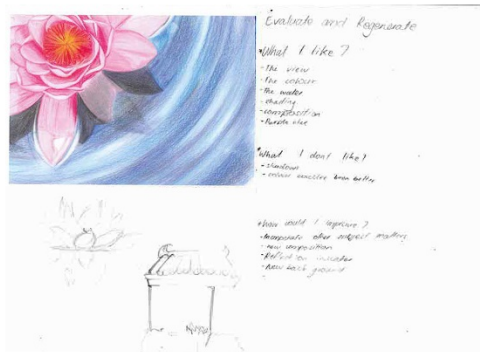 Evaluate and Regenerate
What I like?
- The view
- The colour
- The water
- shading
- composition
What I dont like?
- shadows
- better
How would I improve?
- Incorporate other subject matters
- new composition
- Reflection in water
- New back ground